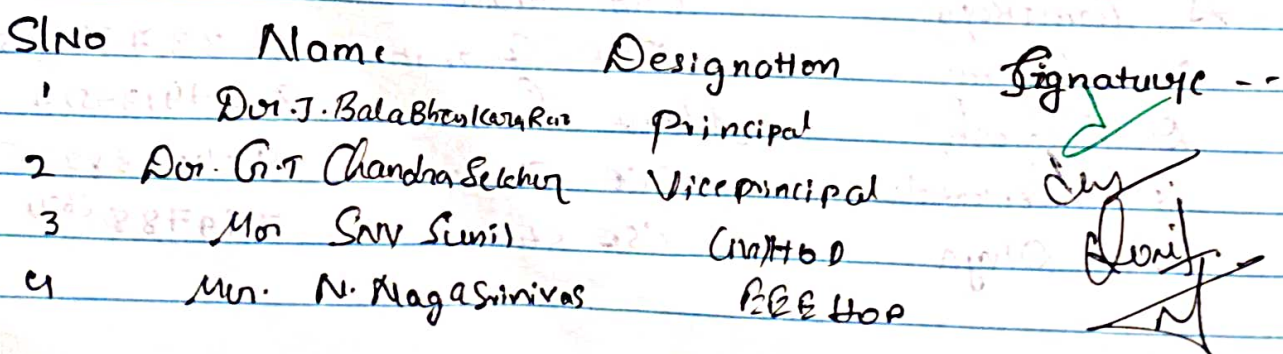 Sl No Name Designation Signature --
1 Dr. J. Bala Bhaskara Rao Principal
2 Dr. G.T Chandra Sekher Vice principal
3 Mr SNV Sunil HOD
4 Mr. N. Naga Srinivas EEE HOD